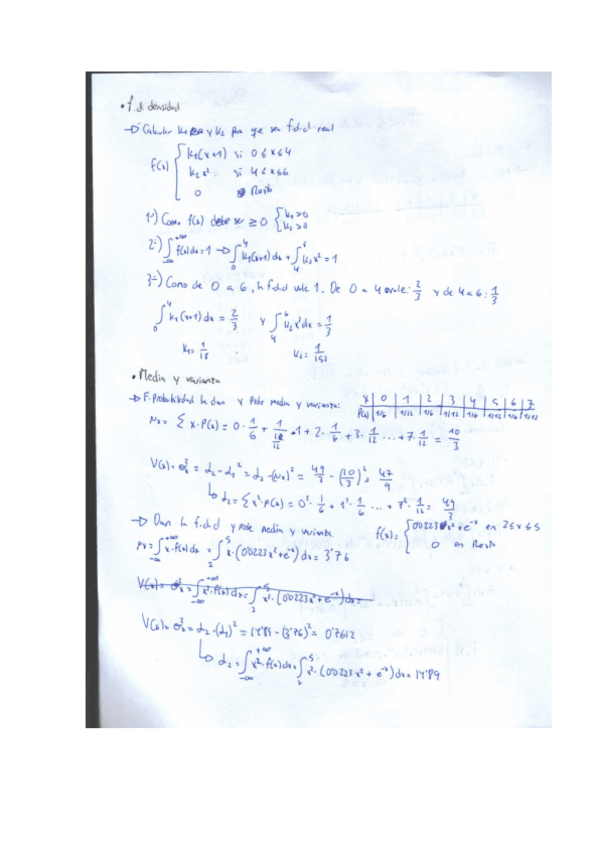 • f.d. densidad
→ Calcular K₁ y K₂ para que sea f.d.d real
f(x) { K₁(x+1) si 0 ≤ x ≤ 4
K₂ x² si 4 < x ≤ 6
0 Resto
1º) Como f(x) debe ser ≥ 0 { K₁>0 K₂>0
2º) ∫_{-∞}^{+∞} f(x)dx = 1 → ∫_0^4 K₁(x+1)dx + ∫_4^6 K₂x² = 1
3º) Como de 0 a 6, la f.d.d vale 1. De 0 a 4 vale: 2/3 y de 4 a 6: 1/3
∫_0^4 K₁(x+1)dx = 2/3 y ∫_4^6 K₂x²dx = 1/3
K₁ = 1/18 K₂ = 1/152
• Media y varianza
→ F. probabilidad la dan y pide media y varianza:
x | 0 | 1 | 2 | 3 | 4 | 5 | 6 | 7
P(x) | 1/6 | 1/12 | 1/6 | 1/12 | 1/6 | 1/12 | 1/6 | 1/12
μx = Σ x·P(x) = 0·1/6 + 1/12·1 + 2·1/6 + 3·1/12 ... + 7·1/12 = 10/3
V(x) = σx² = α₂ - α₁² = α₂ - (μx)² = 49/3 - (10/3)² = 47/9
↳ α₂ = Σ x²·P(x) = 0²·1/6 + 1²·1/6 ... + 7²·1/12 = 49/3
→ Dan la f.d.d y pide media y varianza
f(x) = { 0'0223x² + e^{-x} en 2 ≤ x ≤ 5
0 en Resto
μx = ∫_{-∞}^{+∞} x·f(x)dx = ∫_2^5 x·(0'0223x² + e^{-x})dx = 3'76
V(x) = σx² = ∫_{-∞}^{+∞} x²·f(x)dx = ∫_2^5 x²·(0'0223x² + e^{-x})dx =
V(x) = σx² = α₂ - (α₁)² = 14'89 - (3'76)² = 0'7612
↳ α₂ = ∫_{-∞}^{+∞} x²·f(x)dx = ∫_2^5 x²·(0'0223x² + e^{-x})dx = 14'89